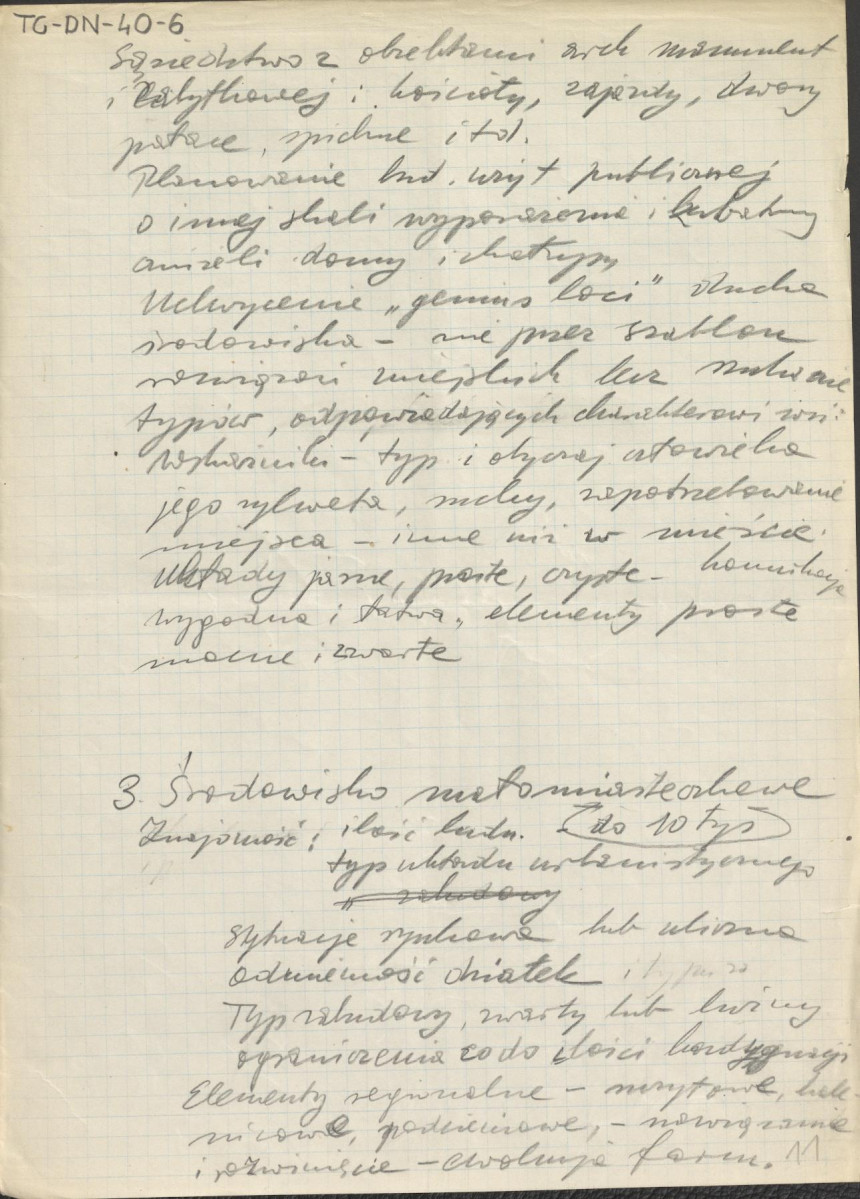 TG-DN-40-6
Sąsiedztwo z obiektami arch monument
i zabytkowej : kościoły, zajazdy, dwory
pałace, spichrze i td.
Planowanie bud. użyt publicznej
o innej skali wyposażenia i kubatury
aniżeli domy i chałupy
Uchwycenie „genius loci" ducha
środowiska – nie przez szablon
rozwiązań miejskich lecz szukanie
typów, odpowiadających charakterowi wsi:
Wskaźniki – typ i obyczaj człowieka
jego sylweta, ruchy, zapotrzebowanie
miejsca – inne niż w mieście.
Układy jasne, proste, czyste – komunikacja
wygodna i łatwa, elementy proste
mocne i zwarte
3. Środowisko małomiasteczkowe
Znajomość: ilość ludn. (do 10 tyś)
typ układu urbanistycznego
„ zabudowy
sytuacje rynkowa lub uliczna
odmienność działek i
Typ zabudowy, zwarty lub luźny
ograniczenia co do ilości kondygnacji
Elementy regionalne – szczytowe, kale-
nicowe, podcieniowe, – nawiązanie
i rozwinięcie – ewolucja form. 11